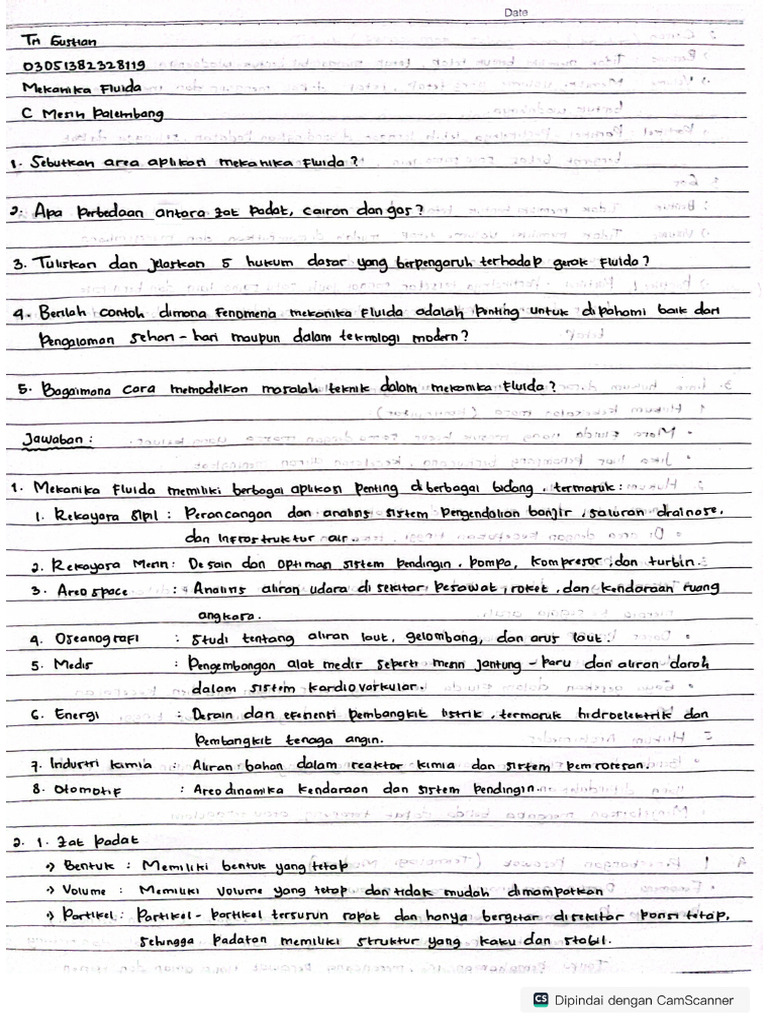 Date
Tri Gustian
03051382328119
Mekanika Fluida
C Mesin Palembang
1. Sebutkan area aplikasi mekanika Fluida ?
2. Apa perbedaan antara zat padat, cairan dan gas ?
3. Tuliskan dan jelaskan 5 hukum dasar yang berpengaruh terhadap gerak Fluida ?
4. Berilah contoh dimana Fenomena mekanika Fluida adalah penting untuk dipahami baik dari
Pengalaman sehari-hari maupun dalam teknologi modern ?
5. Bagaimana cara memodelkan masalah teknik dalam mekanika Fluida ?
Jawaban :
1. Mekanika Fluida memiliki berbagai aplikasi penting di berbagai bidang, termasuk :
1. Rekayasa Sipil : Perancangan dan analisis sistem pengendalian banjir, saluran drainase,
dan infrastruktur air.
2. Rekayasa Mesin : Desain dan optimasi sistem pendingin, pompa, kompresor, dan turbin.
3. Areospace : Analisis aliran udara di sekitar pesawat, roket, dan kendaraan ruang
angkasa.
4. Oseanografi : Studi tentang aliran laut, gelombang, dan arus laut.
5. Medis : Pengembangan alat medis seperti mesin jantung-paru dan aliran darah
dalam sistem kardiovaskular.
6. Energi : Desain dan efisiensi pembangkit listrik, termasuk hidroelektrik dan
pembangkit tenaga angin.
7. Industri kimia : Aliran bahan dalam reaktor kimia dan sistem pemrosesan.
8. Otomotif : Areodinamika kendaraan dan sistem pendingin.
2. 1. Zat Padat
-> Bentuk : Memiliki bentuk yang tetap
-> Volume : Memiliki volume yang tetap dan tidak mudah dimampatkan
-> Partikel : Partikel-partikel tersusun rapat dan hanya bergetar disekitar posisi tetap,
sehingga padatan memiliki struktur yang kaku dan stabil.
CS Dipindai dengan CamScanner